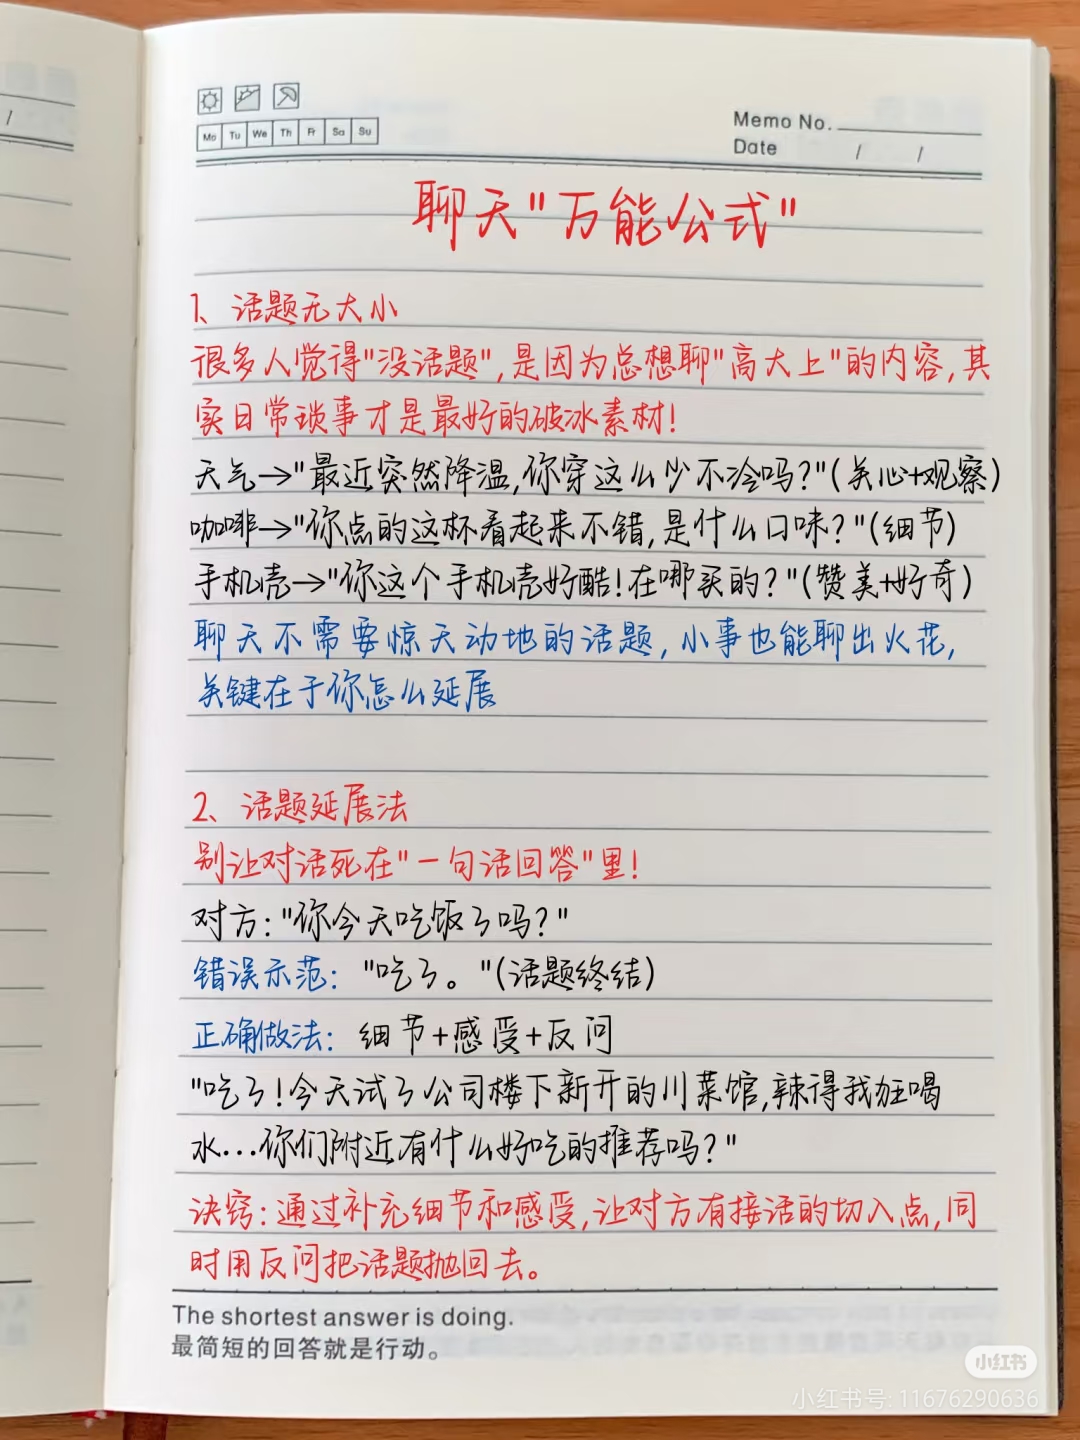 Mo Tu We Th Fr Sa Su
Memo No.
Date / /
聊天"万能公式"
1、话题无大小
很多人觉得"没话题",是因为总想聊"高大上"的内容,其
实日常琐事才是最好的破冰素材!
天气→"最近突然降温,你穿这么少不冷吗?"(关心+观察)
咖啡→"你点的这杯看起来不错,是什么口味?"(细节)
手机壳→"你这个手机壳好酷!在哪买的?"(赞美+好奇)
聊天不需要惊天动地的话题,小事也能聊出火花,
关键在于你怎么延展
2、话题延展法
别让对话死在"一句话回答"里!
对方:"你今天吃饭了吗?"
错误示范:"吃了。"(话题终结)
正确做法:细节+感受+反问
"吃了!今天试了公司楼下新开的川菜馆,辣得我狂喝
水...你们附近有什么好吃的推荐吗?"
诀窍:通过补充细节和感受,让对方有接话的切入点,同
时用反问把话题抛回去。
The shortest answer is doing.
最简短的回答就是行动。
小红书
小红书号: 11676290636